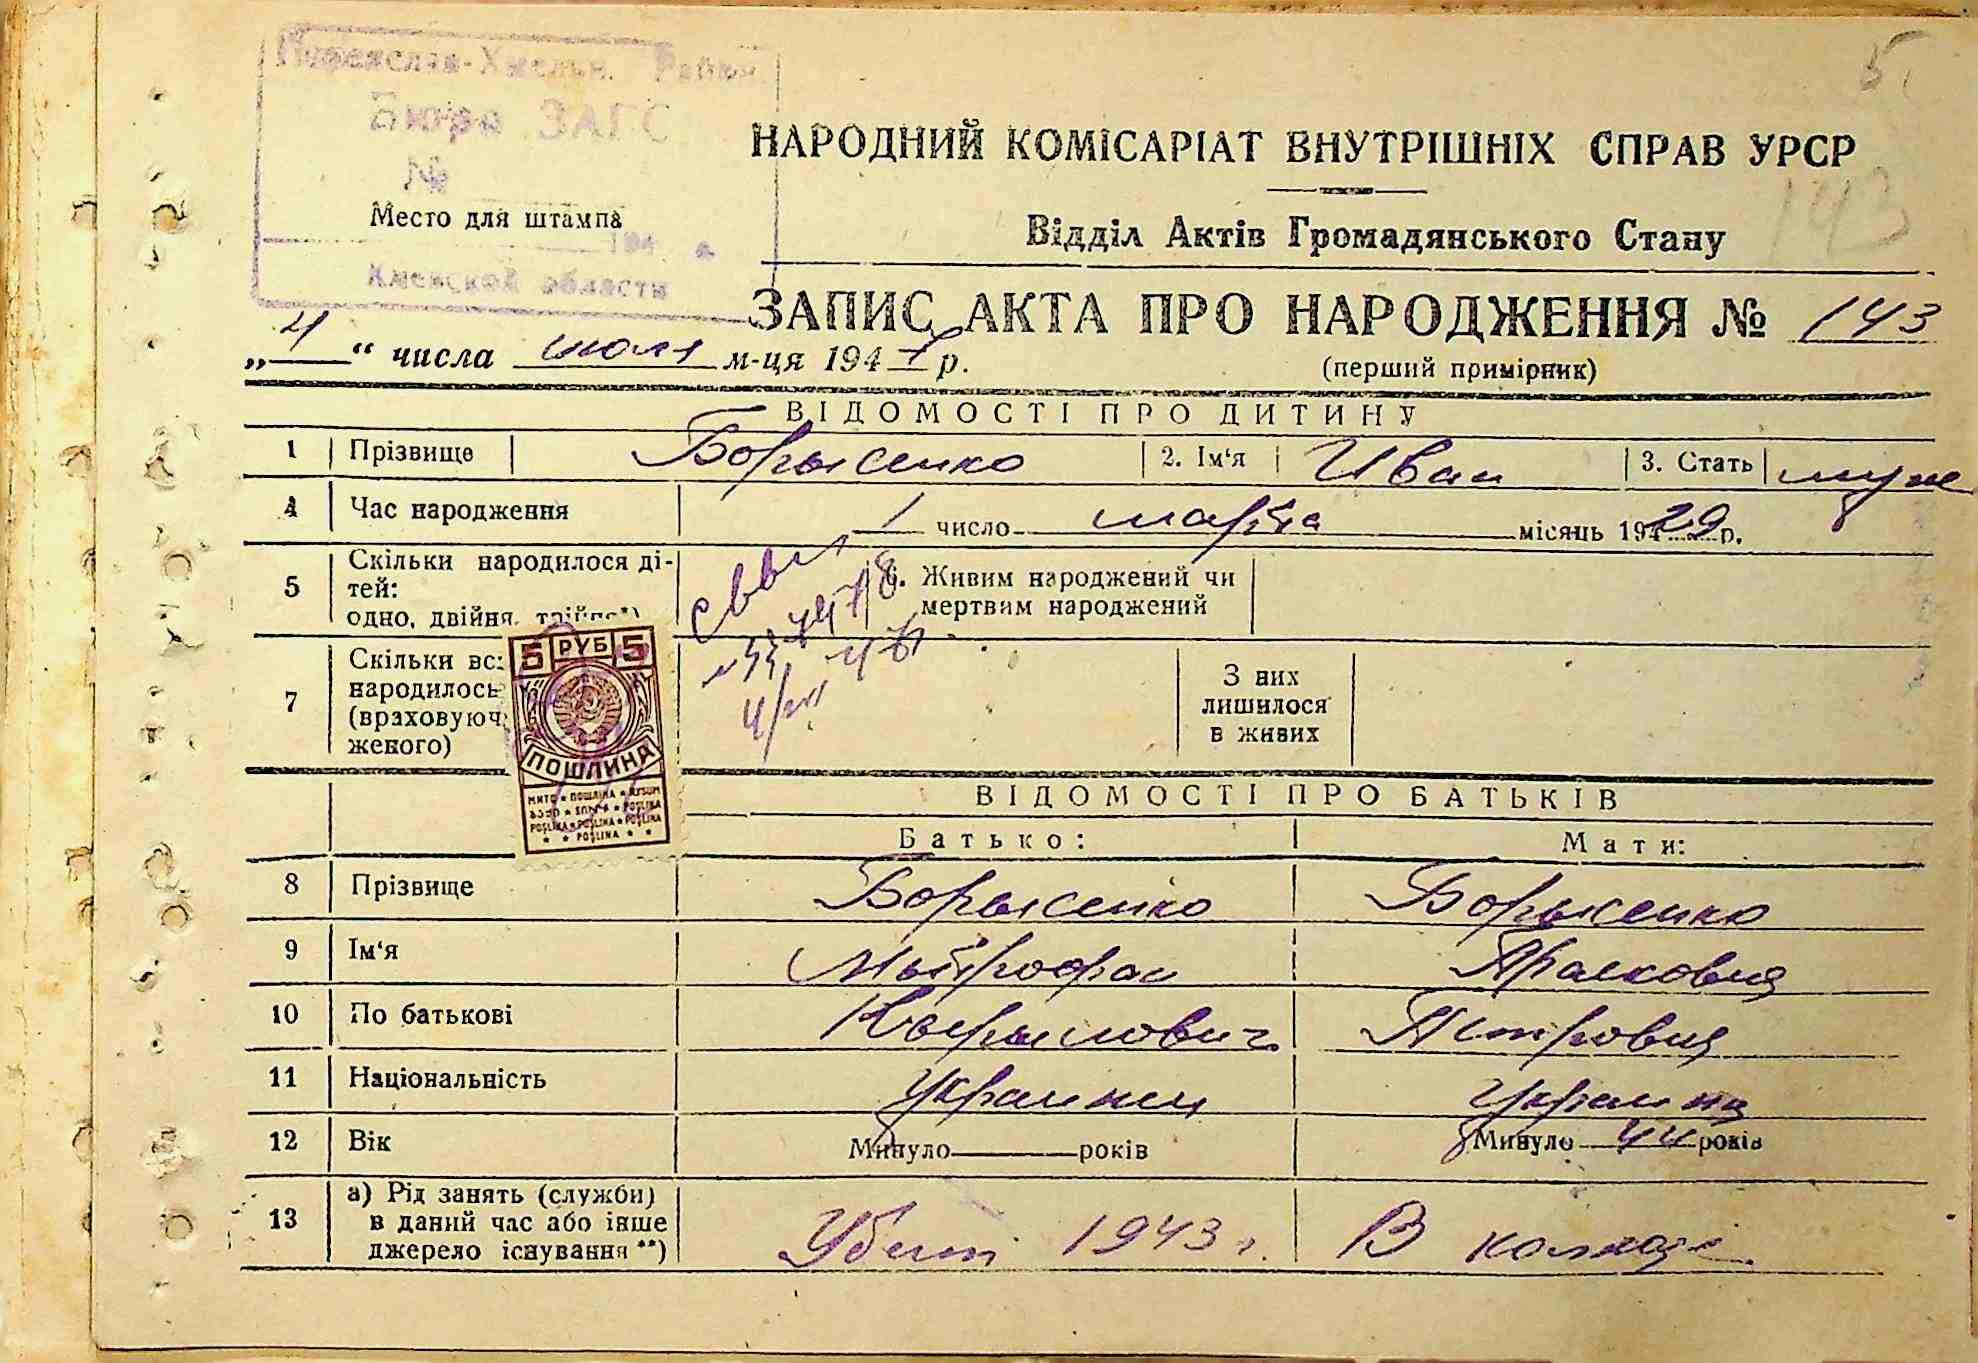 5
Переяслав-Хмельн. Район
Бюро ЗАГС
№
Место для штампа
194 г.
Киевской области
НАРОДНИЙ КОМІСАРІАТ ВНУТРІШНІХ СПРАВ УРСР
143
Відділ Актів Громадянського Стану
ЗАПИС АКТА ПРО НАРОДЖЕННЯ № 143
„ 4 “ числа июля м-ця 1947 р.
(перший примірник)
ВІДОМОСТІ ПРО ДИТИНУ
1 Прізвище Борысенко 2. Ім'я Иван 3. Стать муж
4 Час народження 1 число марта місяць 1929 р.
5 Скільки народилося ді-
тей:
одно, двійня, трійня*)
6. Живим народжений чи
мертвим народжений
7 Скільки вс
народилось
(враховуюч
женого)
З них
лишилося
в живих
5 РУБ 5
ПОШЛИНА
ВІДОМОСТІ ПРО БАТЬКІВ
Батько: Мати:
8 Прізвище Борысенко Борысенко
9 Ім'я Мытрофан Парасковия
10 По батькові Кырылович Петровна
11 Національність Украинец Украинка
12 Вік Минуло років Минуло 44 років
13 а) Рід занять (служби)
в даний час або інше
джерело існування **)
Убит 1943 г. В колхозе